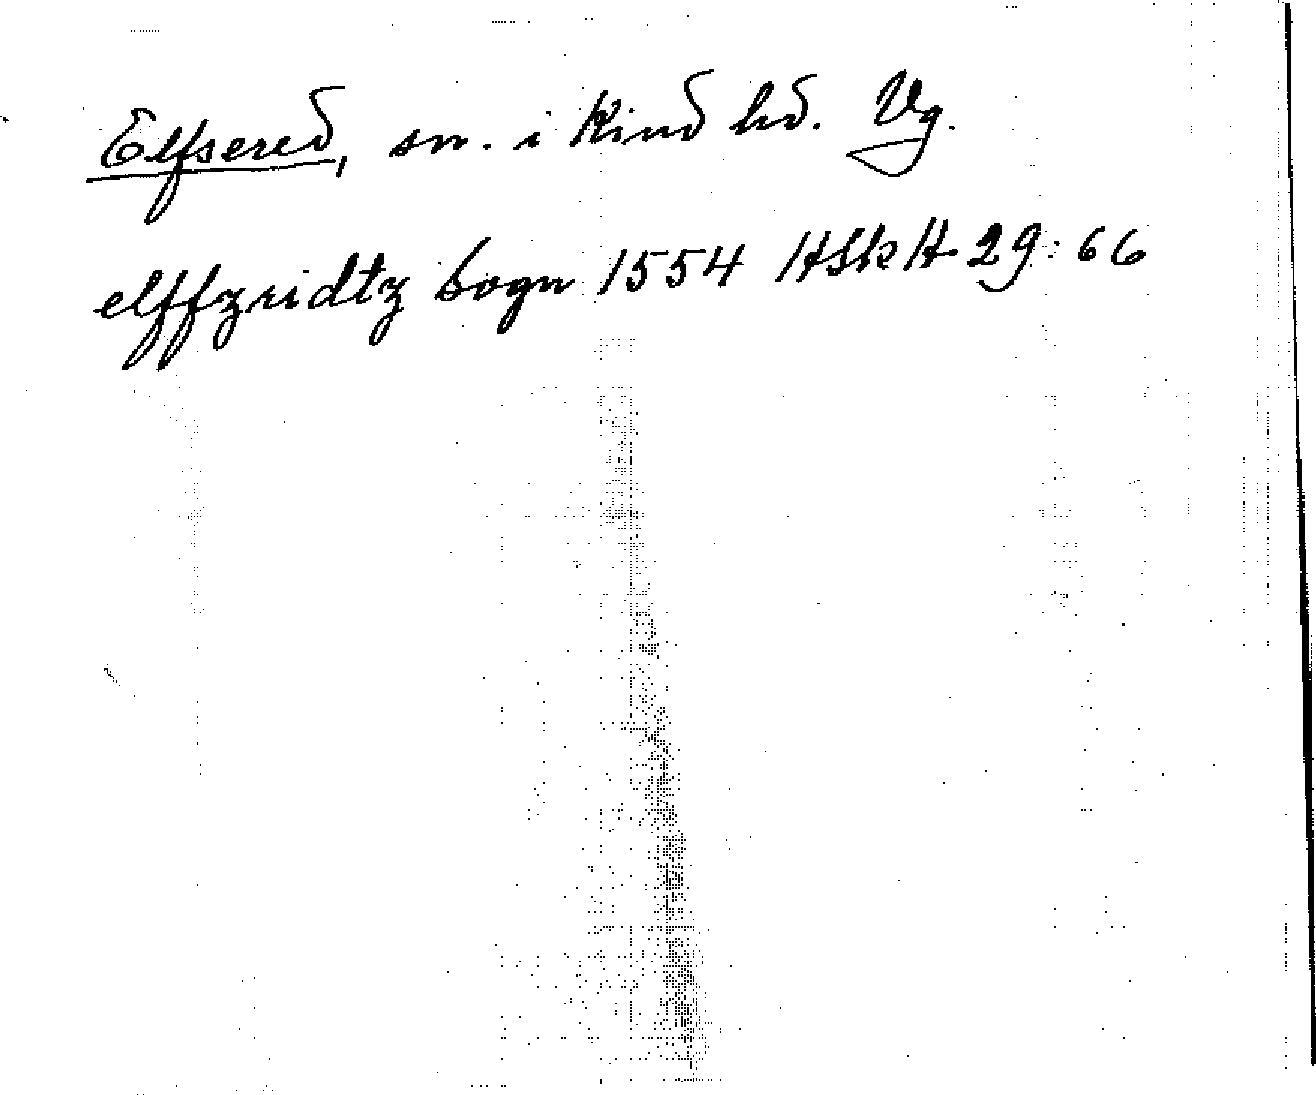 Elfsered, sn. i Kind hd. Vg.
elffzridtz sogn 1554 HSkH 29:66